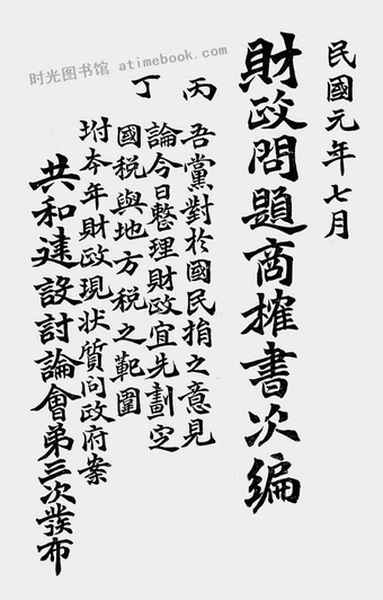 民國元年七月
財政問題商搉書次編
丙
吾黨對於國民捐之意見
丁
論今日整理財政宜先劃定
國税與地方税之範圍
坿夲年財政現状質问政府案
共和建設討論會弟三次發布
时光图书馆 atimebook.com